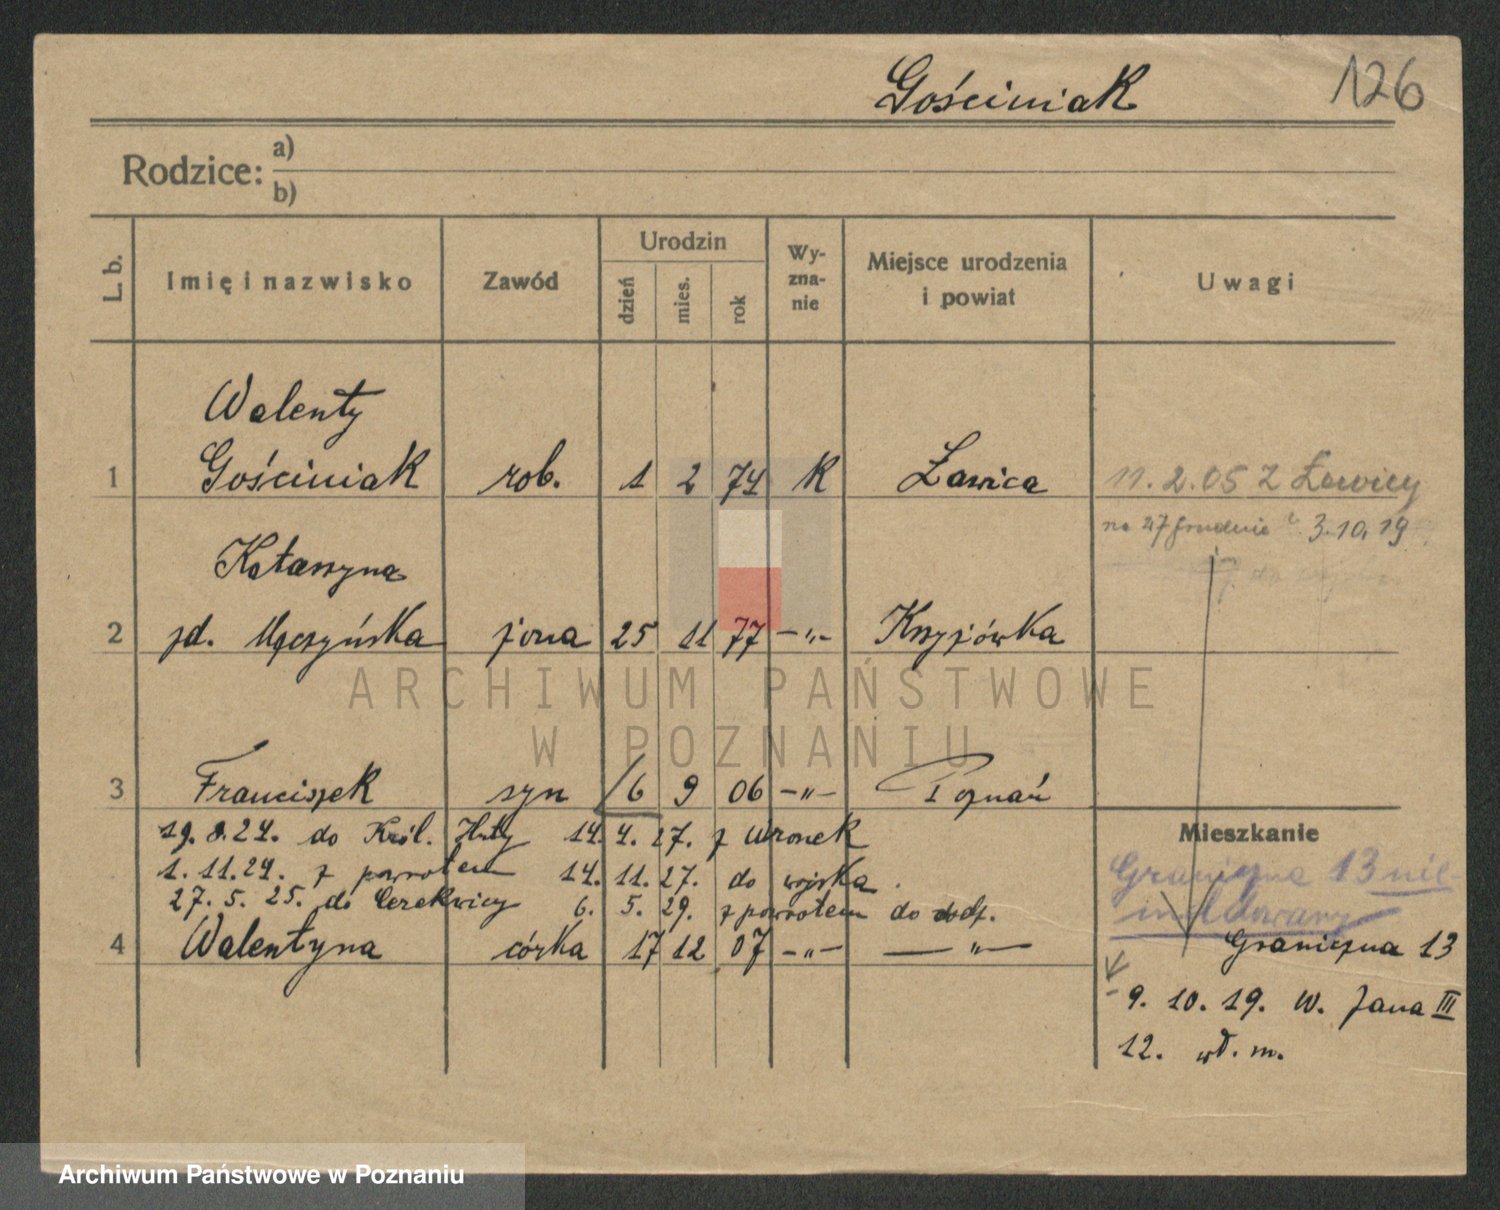 Gościniak 126
Rodzice: a)
b)
L. b. Imię i nazwisko Zawód Urodzin dzień mies. rok Wy-zna-nie Miejsce urodzenia i powiat Uwagi
Walenty
1 Gościniak rob. 1 2 74 K Ławica 11.2.05 Z Ławicy
na 27 Grudnia 3.10.19
Katarzyna
2 żd. Męczyńska żona 25 11 77 –„– Krzyżówka
ARCHIWUM PAŃSTWOWE
W POZNANIU
3 Franciszek syn 16 9 06 –„– Poznań
19. 8. 24. do Król. Huty 14. 4. 27. z Wronek
Mieszkanie
1. 11. 24. z powrotem 14. 11. 27. do wojska.
Graniczna 13 nie-
27. 5. 25. do Cerekwicy 6. 5. 29. z powrotem do
meldowany
4 Walentyna córka 17 12 07 –„– –„–
Graniczna 13
9. 10. 19. W. Jana III
12. wł. m.
Archiwum Państwowe w Poznaniu